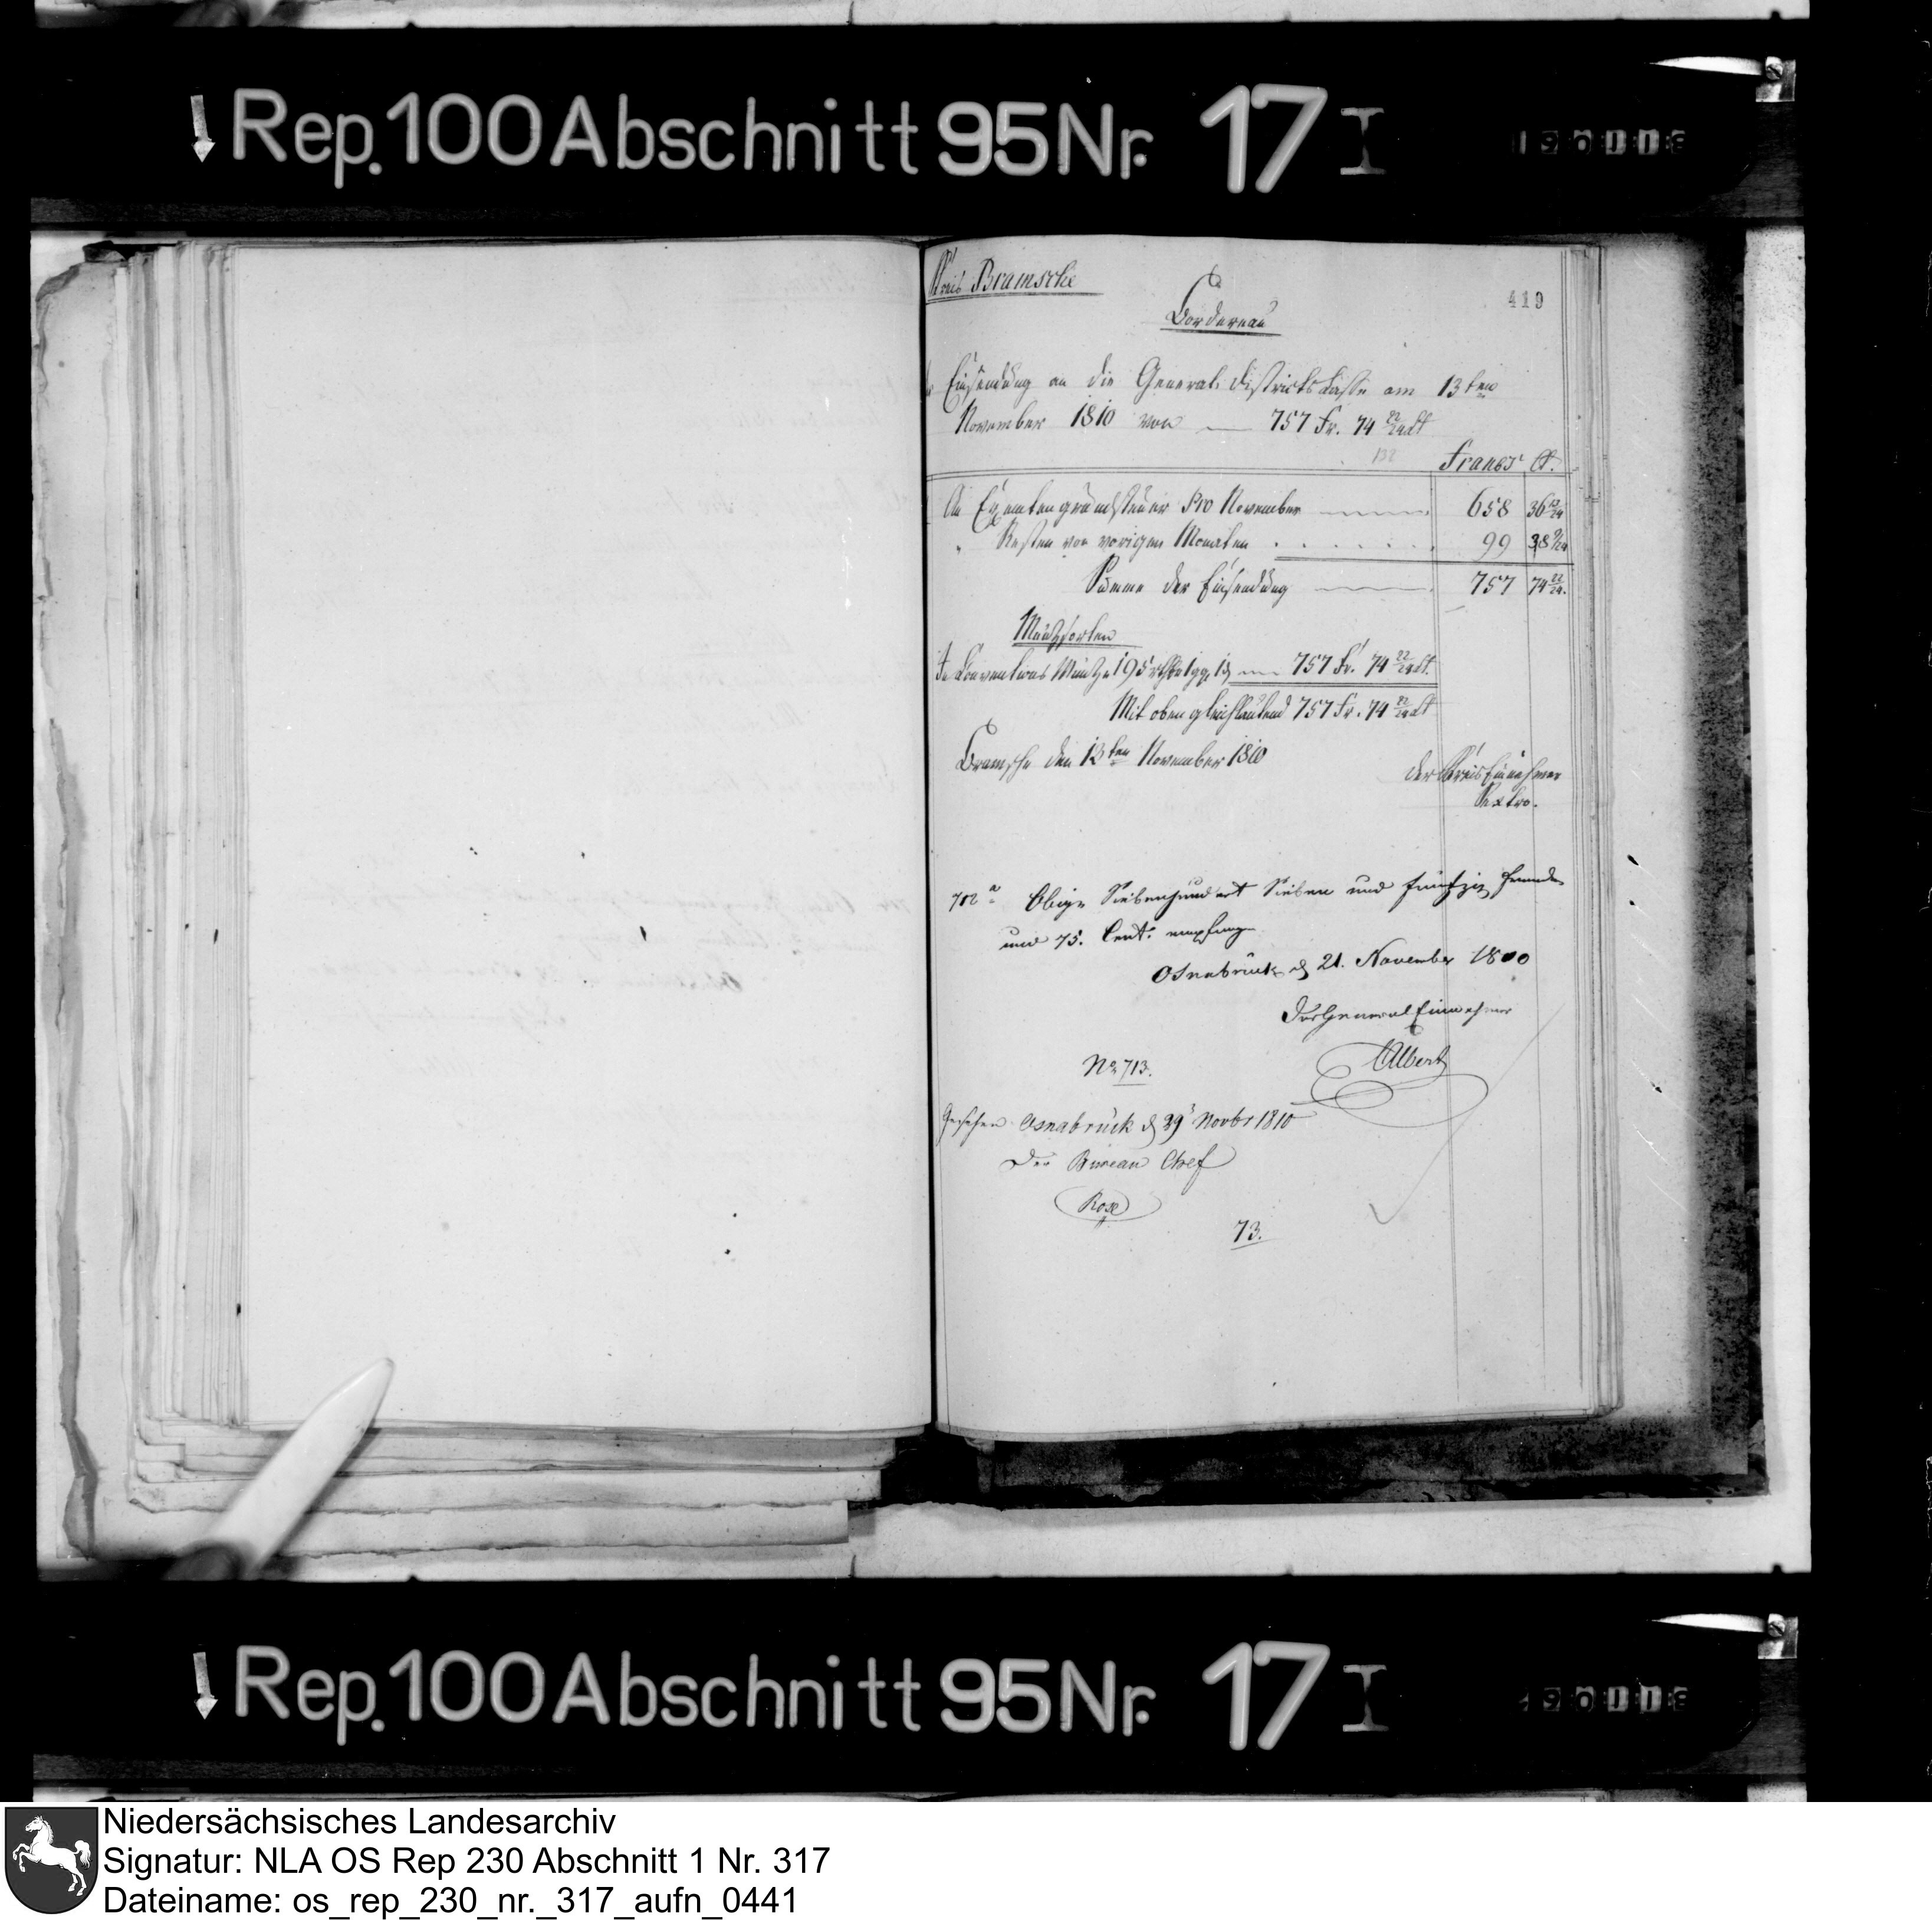 Rep. 100 Abschnitt 95 Nr. 17 I
Kreis Bramsche
419
Bordereau
Einsendung an die General Districts Casse am 13ten
November 1810 von — 757 Fr. 74 22/24 Ct
132
Francs Ct.
An Exemtengrundsteuer pro November 658 36 13/24
" Resten von vorigen Monaten 99 38 9/24
Summe der Einsendung 757 74 22/24
Müntzsorten
In Conventions Müntze 195 1 757 Fr. 74 22/24 Ct.
Mit oben gleichlautend 757 Fr. 74 22/24 Ct
Bramsche den 13ten November 1810
der Kreis Einnehmer
Sextro.
712 a Obige Siebenhundert Sieben und funfzig
und 75. Cent. empfangen
Osnabrück d 21. November 1810
Der General Einnehmer
Albert
No 713.
Gesehen Osnabrück d 29 Novbr 1810
Der Bureau Chef
Rose
73.
Rep. 100 Abschnitt 95 Nr. 17 I
Niedersächsisches Landesarchiv
Signatur: NLA OS Rep 230 Abschnitt 1 Nr. 317
Dateiname: os_rep_230_nr._317_aufn_0441